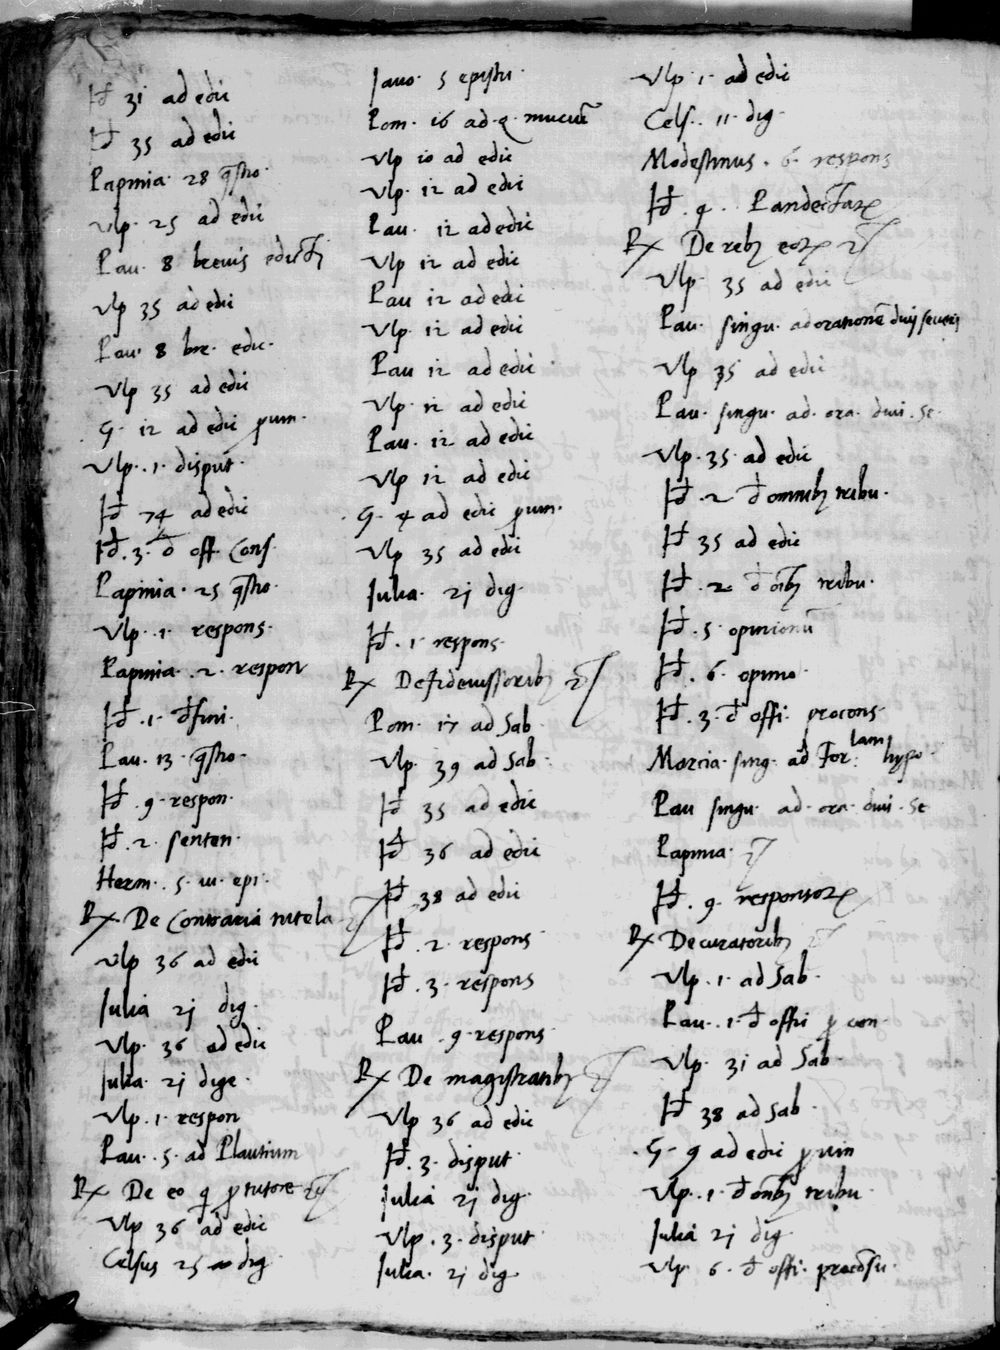 Id 31 ad edic
Id 35 ad edic
Papinia· 28 q̄stio·
Vlp· 25 ad edic
Pau· 8 brevis edicti
Vlp 35 ad edic
Pau· 8 bre· edic·
Vlp 35 ad edic
G· 12 ad edic ꝓuin·
Vlp· 1· disput·
Id 74 ad edic
Id· 3· đ off Cons·
Papinia· 25 q̄stio·
Vlp· 1· respons·
Papinia· 2· respon
Id· 1· đfini·
Pau· 13· q̄stio·
Id· 9· respon·
Id· 2· senten·
Herm· 5· iu· epi·
Rx De Contraria tutela
Vlp 36 ad edic
Julia 21 dig·
Vlp· 36 ad edic
Julia· 21 dige·
Vlp· 1· respon
Pau· 5· ad Plautium
Rx De eo q̄ ꝓ tutore
Vlp 36 ad edic
Celsus 25 dig·
Javo· 5 epistu·
Pom· 16 ad· q· muciū
Vlp 10 ad edic
Vlp· 12 ad edic
Pau· 12 ad edic
Vlp 12 ad edic
Pau 12 ad edic
Vlp· 12 ad edic
Pau 12 ad edic
Vlp· 12 ad edic
Pau· 12 ad edic
Vlp 12 ad edic
G· 4 ad edic ꝓuin·
Vlp 35 ad edic
Julia· 21 dig·
Id· 1· respons·
Rx De fideiussoribꝫ
Pom· 17 ad Sab
Vlp· 39 ad Sab·
Id 35 ad edic
Id 36 ad edic
Id 38 ad edic
Id· 2· respons
Id· 3· respons
Pau· 9· respons·
Rx De magistratibꝫ
Vlp 36 ad edic
Id· 3· disput·
Julia 21 dig·
Vlp· 3· disput·
Julia· 21 dig·
Vlp· 1· ad edic
Cels· 11· dig·
Modestinus· 6· respons
Id· 4· Pandectaꝝ
Rx De rebꝫ eoꝝ
Vlp· 35 ad edic
Pau· singu· ad orationē diui seueri
Vlp 35 ad edic
Pau· singu· ad· ora· diui· se·
Vlp· 35· ad edic
Id· 2 đ omnibꝫ tribu·
Id 35 ad edic
Id· 2 đ oībꝫ tribu·
Id· 5· opinionū
Id· 6· opinio·
Id· 3· đ offi· procons·
Marcia· sing· ad For: lam hypo·
Pau singu· ad· ora· diui· se·
Papinia·
Id· 9· responsoꝝ
Rx De curatoribꝫ
Vlp· 1· ad Sab·
Pau· 1· đ offici ꝓ con·
Vlp· 31 ad Sab·
Id 38 ad Sab·
G· 9 ad edic ꝓuin
Vlp· 1· đ oībꝫ tribu·
Julia 21 dig·
Vlp· 6· đ offi· procōsu·